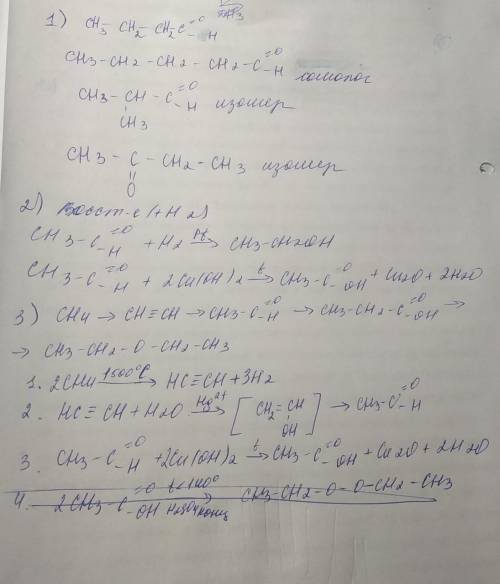 1) CH3 CH2 CH2C=O H
CH3-CH2-CH2-CH2-C=O H гомолог
CH3-CH-C=O H изомер
CH3
CH3-C-CH2-CH3 изомер
O
2) Восст-е (+H2)
CH3-C=O H +H2 → CH3-CH2OH
CH3-C=O H + 2Cu(OH)2 t→ CH3-C=O OH + Cu2O + 2H2O
3) CH4 → CH≡CH → CH3-C=O H → CH3-CH2-C=O OH →
→ CH3-CH2-O-CH2-CH3
1. 2CH4 1500°C→ HC≡CH + 3H2
2. HC≡CH + H2O Hg2+→ [CH2=CH OH] → CH3-C=O H
3. CH3-C=O H +2Cu(OH)2 t→ CH3-C=O OH + Cu2O + 2H2O
4. 2CH3-C=O OH t<140° H2SO4 конц → CH3-CH2-O-O-CH2-CH3